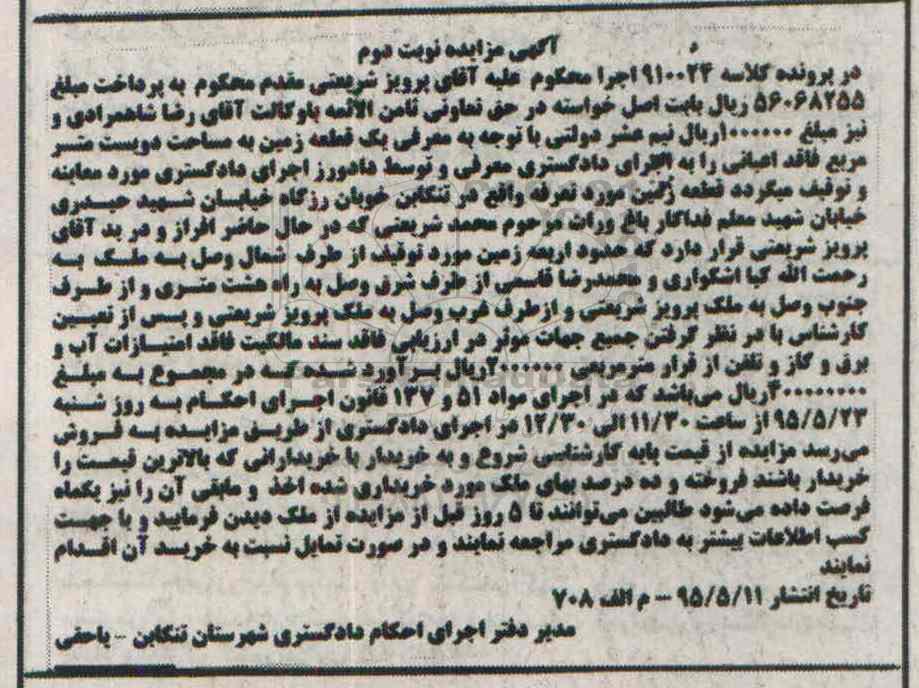 آگهی مزایده نوبت دوم
در پرونده کلاسه ۹۱۰۰۲۴ اجرا محکوم علیه آقای پرویز شریعتی مقدم محکوم به پرداخت مبلغ
۵۶۰۶۸۲۵۵ ریال بابت اصل خواسته در حق تعاونی ثامن الائمه باوکالت آقای رضا شاهمرادی و
نیز مبلغ ۱۰۰۰۰۰۰ریال نیم عشر دولتی با توجه به معرفی یک قطعه زمین به مساحت دویست متر
مربع فاقد اعیانی را به اجرای دادگستری معرفی و توسط دادورز اجرای دادگستری مورد معاینه
و توقیف میگردد قطعه زمین مورد تعرفه واقع در تنکابن خوبان رزگاه خیابان شهید حیدری
خیابان شهید معلم فداکار باغ وراث مرحوم محمد شریعتی که در حال حاضر افراز و در ید آقای
پرویز شریعتی قرار دارد که حدود اربعه زمین مورد توقیف از طرف شمال وصل به ملک به
رحمت الله کیا اشکواری و محمدرضا قاسمی از طرف شرق وصل به راه هشت متری و از طرف
جنوب وصل به ملک پرویز شریعتی و ازطرف غرب وصل به ملک پرویز شریعتی و پس از تعیین
کارشناس با در نظر گرفتن جمیع جهات موثر در ارزیابی فاقد سند مالکیت فاقد امتیازات آب و
برق و گاز و تلفن از قرار مترمربعی ۲۰۰۰۰۰۰ریال برآورد شده که در مجموع به مبلغ
۴۰۰۰۰۰۰۰۰ریال می‌باشد که در اجرای مواد ۵۱ و ۱۳۷ قانون اجرای احکام به روز شنبه
۹۵/۵/۲۳ از ساعت ۱۱/۳۰ الی ۱۲/۳۰ در اجرای دادگستری از طریق مزایده به فروش
می‌رسد مزایده از قیمت پایه کارشناسی شروع و به خریدار یا خریدارانی که بالاترین قیمت را
خریدار باشند فروخته و ده درصد بهای ملک مورد خریداری شده اخذ و مابقی آن را نیز یکماه
فرصت داده می‌شود طالبین می‌توانند تا ۵ روز قبل از مزایده از ملک دیدن فرمایید و با جهت
کسب اطلاعات بیشتر به دادگستری مراجعه نمایند و در صورت تمایل نسبت به خرید آن اقدام
نمایند
تاریخ انتشار ۹۵/۵/۱۱ – م الف ۷۰۸
مدیر دفتر اجرای احکام دادگستری شهرستان تنکابن –